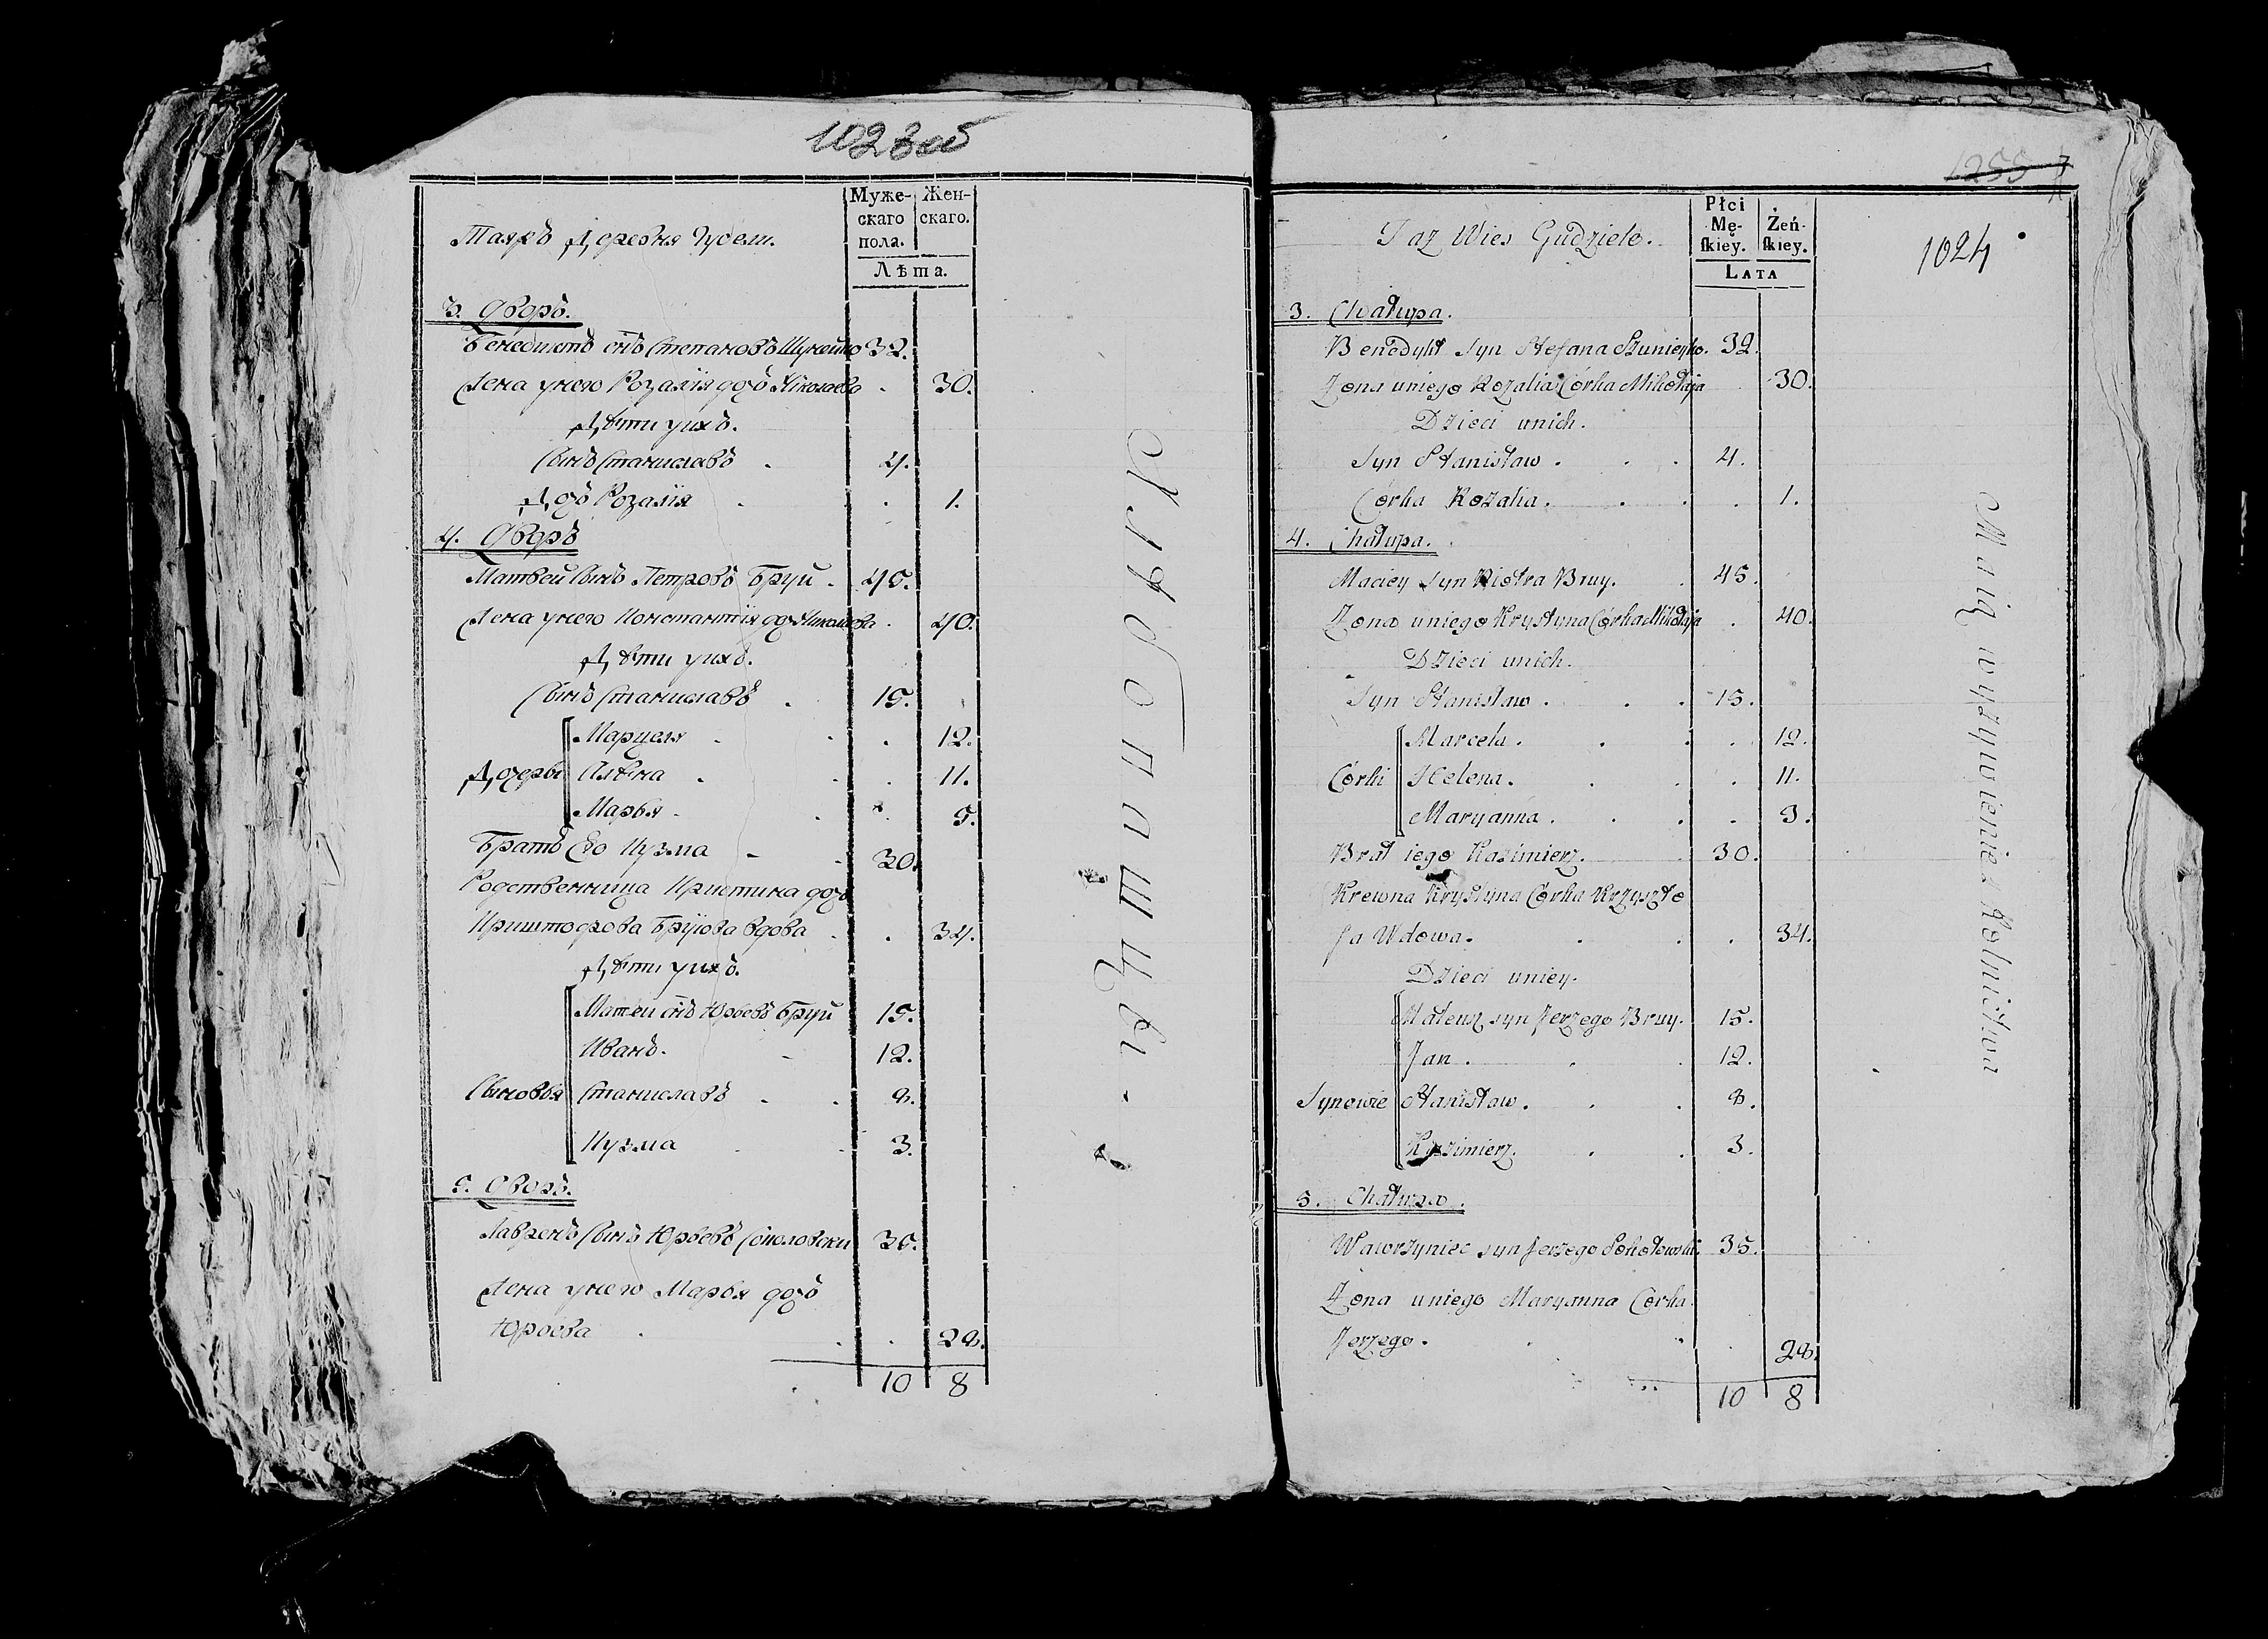 1023 об
Таяжъ Деревня Гудели.
Муже-
скаго
пола.
Жен-
скаго.
Лѣта.
3. Дворъ.
Бенедиктъ сйъ Степановъ Шунейко 32.
Жена унего Розалія дочь Николаева 30.
Дѣти унихъ.
Сынъ Станиславъ 4.
Дочь Розалія 1.
4. Дворъ
Матвей Сынъ Петровъ Бруй 45.
Жена унего Константія дочь Николаева 40.
Дѣти унихъ.
Сынъ Станиславъ 15.
Марцеля 12.
Дочери Алѣна 11.
Марья 9.
Братъ Его Кузма 30.
Родственница Кристина дочь
Криштофова Бруюва вдова 34.
Дѣти унихъ.
Матеи сйъ Юрьевъ Бруй 15.
Иванъ. 12.
Сыновья Станиславъ 8.
Кузма 3.
5. Дворъ.
Лавренъ Сынъ Юрьевъ Соколовски 35.
Жена унего Марья дочь
Юрьева 28.
10 8
1255
1024
Taż Wies Gudziele.
Płci
Mę-
skiey.
Żeń-
skiey.
LATA
3. Chałupa.
Benedykt syn Stefana Szunieyko. 32.
Zona uniego Rozalia Córka Mikołaja 30.
Dzieci unich.
Syn Stanisław. 4.
Córka Rozalia. 1.
4. Chałupa.
Maciey syn Piotra Bruy. 45.
Zona uniego Krystyna Córka Mikołaja 40.
Dzieci unich.
Syn Stanisław. 15.
Marcela. 12.
Córki Helena. 11.
Maryanna. 9.
Brat iego Kazimierz. 30.
Krewna Krystyna Córka Krzyszto
fa Wdowa. 34.
Dzieci uniey.
Mateusz syn Jerzego Bruy. 15.
Jan. 12.
Synowie Stanisław. 8.
Kazimierz. 3.
5. Chałupa.
Wawrzyniec syn Jerzego Sokołowski. 35.
Zona uniego Maryanna Córka
Jerzego. 28.
10 8
Maią wyżywienie z Rolnictwa